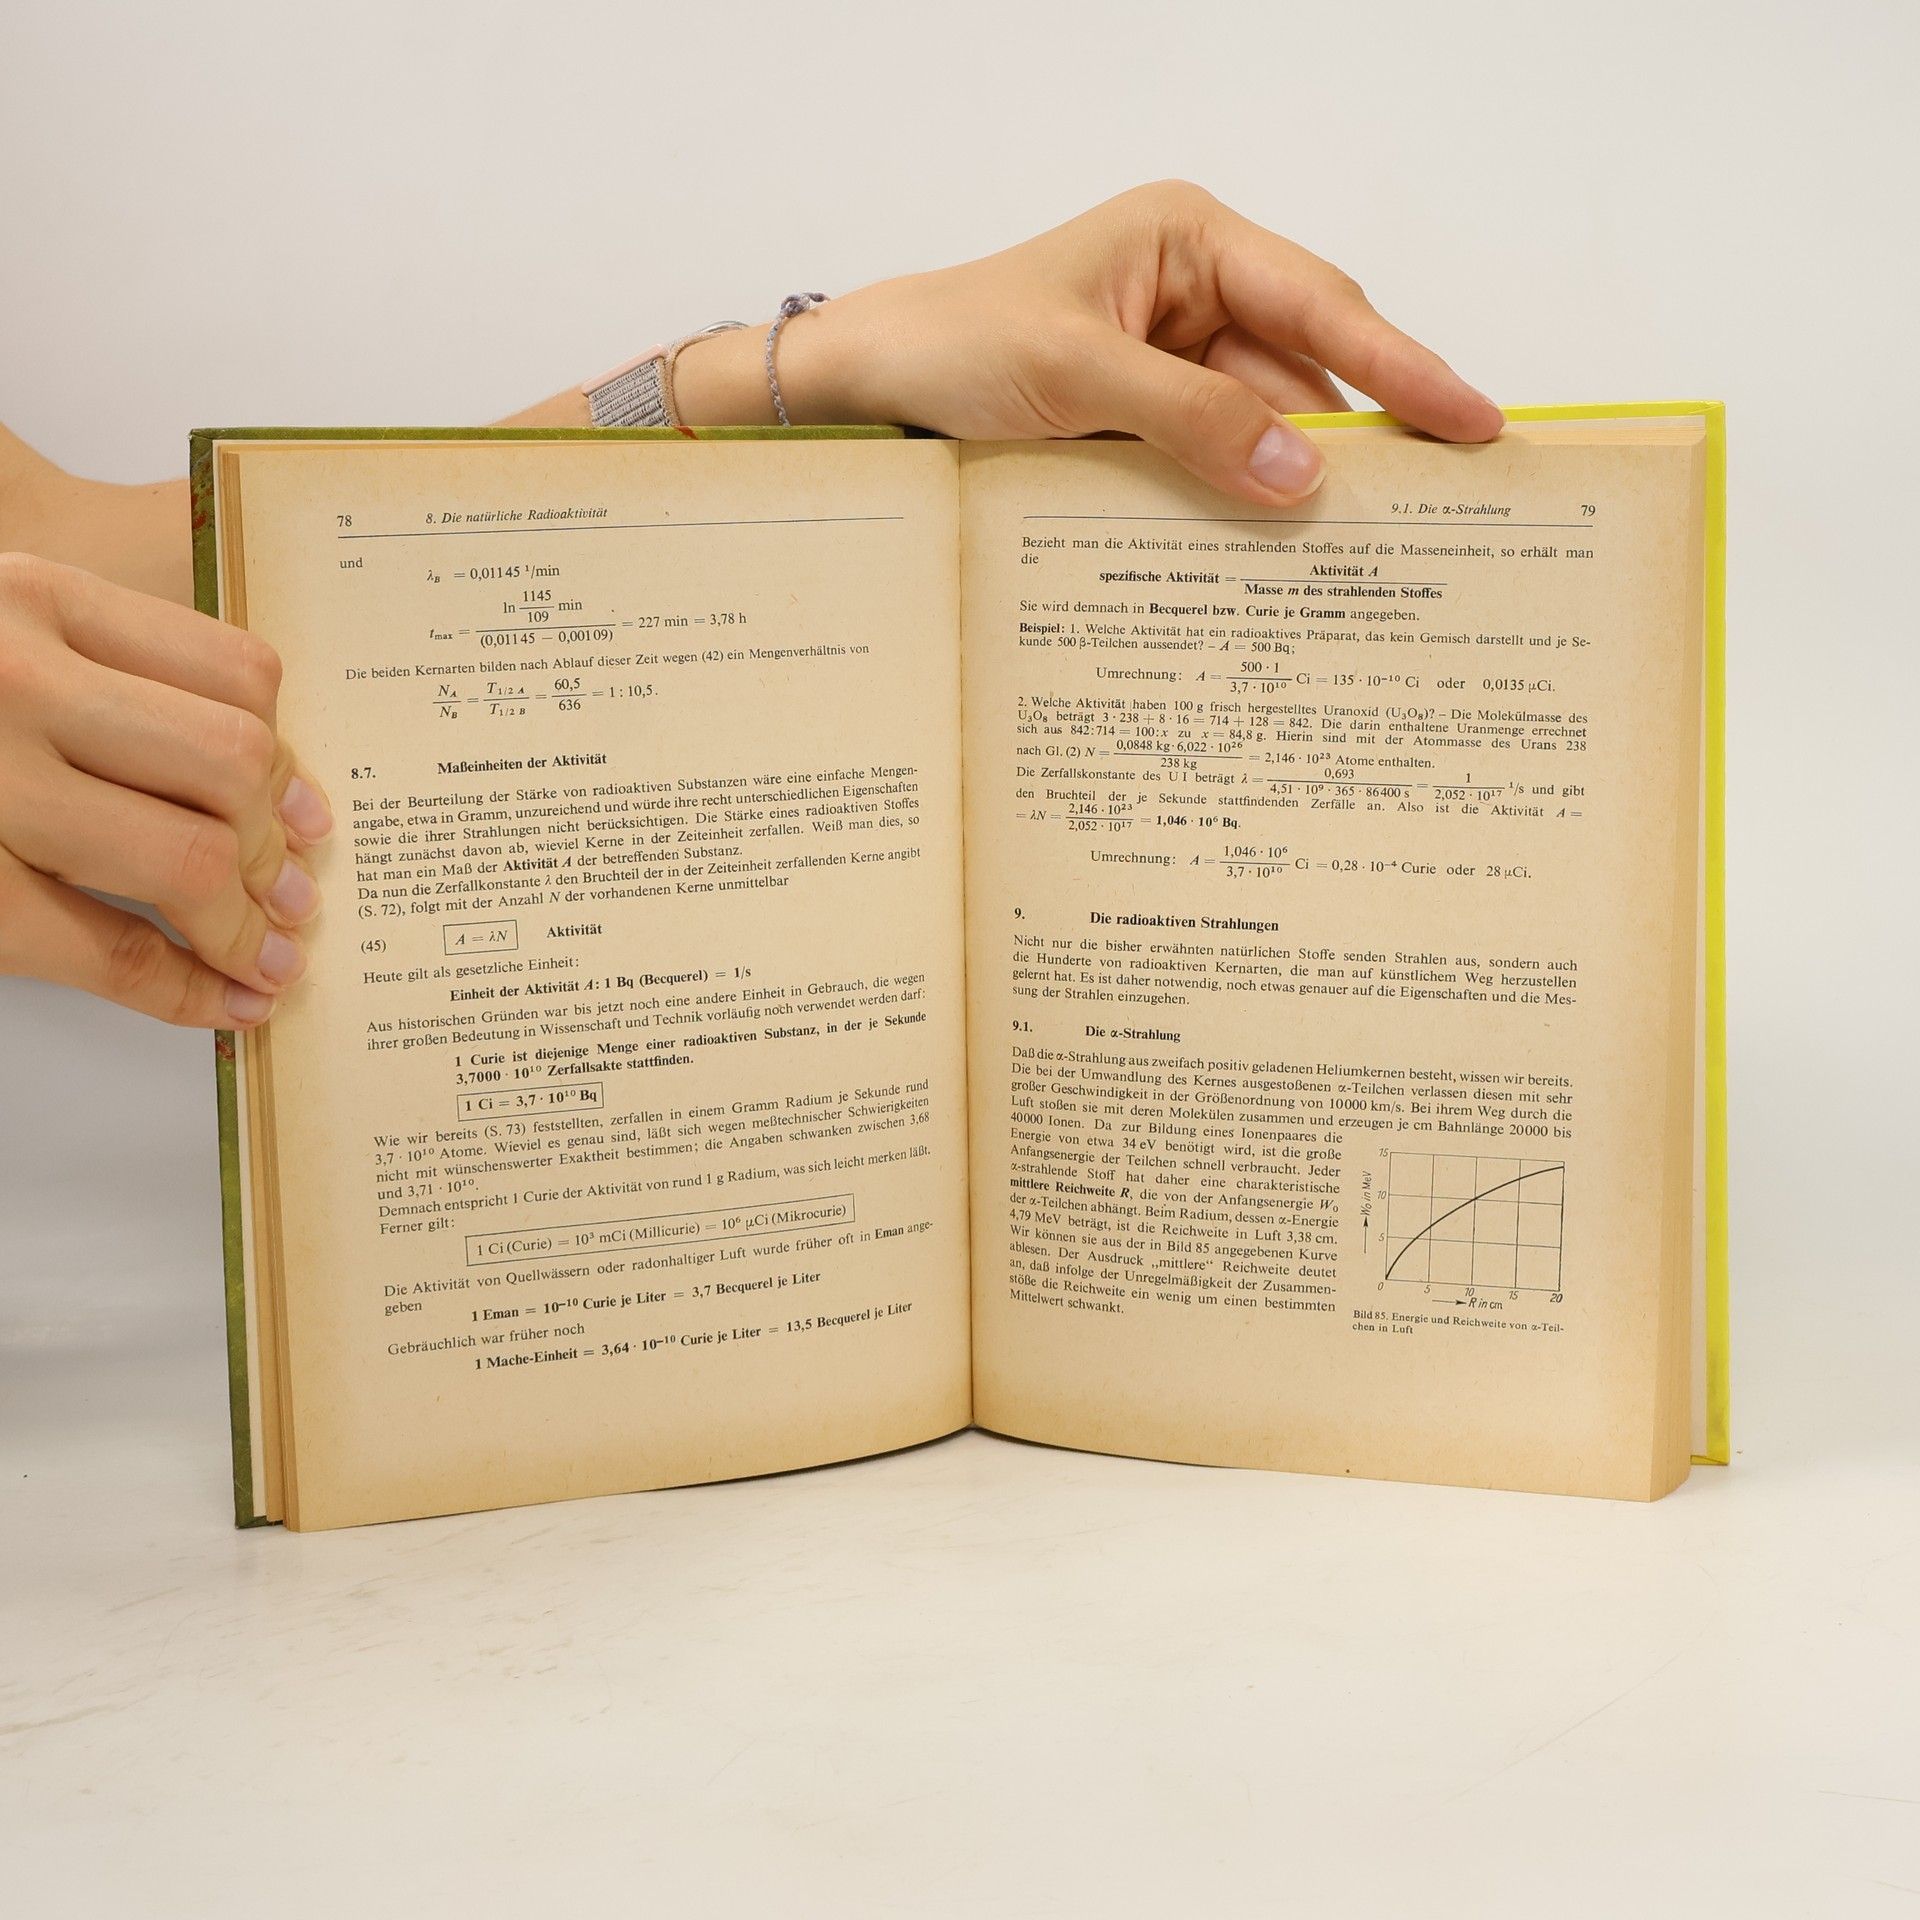 78 8. Die natürliche Radioaktivität
und
λB = 0,01145 1/min
tmax = ln 1145/109 min / (0,01145 − 0,00109) = 227 min = 3,78 h
Die beiden Kernarten bilden nach Ablauf dieser Zeit wegen (42) ein Mengenverhältnis von
NA/NB = T1/2 A/T1/2 B = 60,5/636 = 1 : 10,5.
8.7. Maßeinheiten der Aktivität
Bei der Beurteilung der Stärke von radioaktiven Substanzen wäre eine einfache Mengen-
angabe, etwa in Gramm, unzureichend und würde ihre recht unterschiedlichen Eigenschaften
sowie die ihrer Strahlungen nicht berücksichtigen. Die Stärke eines radioaktiven Stoffes
hängt zunächst davon ab, wieviel Kerne in der Zeiteinheit zerfallen. Weiß man dies, so
hat man ein Maß der Aktivität A der betreffenden Substanz.
Da nun die Zerfallkonstante λ den Bruchteil der in der Zeiteinheit zerfallenden Kerne angibt
(S. 72), folgt mit der Anzahl N der vorhandenen Kerne unmittelbar
(45) A = λN Aktivität
Heute gilt als gesetzliche Einheit:
Einheit der Aktivität A: 1 Bq (Becquerel) = 1/s
Aus historischen Gründen war bis jetzt noch eine andere Einheit in Gebrauch, die wegen
ihrer großen Bedeutung in Wissenschaft und Technik vorläufig noch verwendet werden darf:
1 Curie ist diejenige Menge einer radioaktiven Substanz, in der je Sekunde
3,7000 · 10¹⁰ Zerfallsakte stattfinden.
1 Ci = 3,7 · 10¹⁰ Bq
Wie wir bereits (S. 73) feststellten, zerfallen in einem Gramm Radium je Sekunde rund
3,7 · 10¹⁰ Atome. Wieviel es genau sind, läßt sich wegen meßtechnischer Schwierigkeiten
nicht mit wünschenswerter Exaktheit bestimmen; die Angaben schwanken zwischen 3,68
und 3,71 · 10¹⁰.
Demnach entspricht 1 Curie der Aktivität von rund 1 g Radium, was sich leicht merken läßt.
Ferner gilt:
1 Ci (Curie) = 10³ mCi (Millicurie) = 10⁶ μCi (Mikrocurie)
Die Aktivität von Quellwässern oder radonhaltiger Luft wurde früher oft in Eman ange-
geben
1 Eman = 10⁻¹⁰ Curie je Liter = 3,7 Becquerel je Liter
Gebräuchlich war früher noch
1 Mache-Einheit = 3,64 · 10⁻¹⁰ Curie je Liter = 13,5 Becquerel je Liter
9.1. Die α-Strahlung 79
Bezieht man die Aktivität eines strahlenden Stoffes auf die Masseneinheit, so erhält man
die
spezifische Aktivität = Aktivität A / Masse m des strahlenden Stoffes
Sie wird demnach in Becquerel bzw. Curie je Gramm angegeben.
Beispiel: 1. Welche Aktivität hat ein radioaktives Präparat, das kein Gemisch darstellt und je Se-
kunde 500 β-Teilchen aussendet? – A = 500 Bq;
Umrechnung: A = 500 · 1 / 3,7 · 10¹⁰ Ci = 135 · 10⁻¹⁰ Ci oder 0,0135 μCi.
2. Welche Aktivität haben 100 g frisch hergestelltes Uranoxid (U₃O₈)? – Die Molekülmasse des
U₃O₈ beträgt 3 · 238 + 8 · 16 = 714 + 128 = 842. Die darin enthaltene Uranmenge errechnet
sich aus 842:714 = 100:x zu x = 84,8 g. Hierin sind mit der Atommasse des Urans 238
nach Gl. (2) N = 0,0848 kg · 6,022 · 10²⁶ / 238 kg = 2,146 · 10²³ Atome enthalten.
Die Zerfallskonstante des U I beträgt λ = 0,693 / 4,51 · 10⁹ · 365 · 86400 s = 1 / 2,052 · 10¹⁷ 1/s und gibt
den Bruchteil der je Sekunde stattfindenden Zerfälle an. Also ist die Aktivität A =
= λN = 2,146 · 10²³ / 2,052 · 10¹⁷ = 1,046 · 10⁶ Bq.
Umrechnung: A = 1,046 · 10⁶ / 3,7 · 10¹⁰ Ci = 0,28 · 10⁻⁴ Curie oder 28 μCi.
9. Die radioaktiven Strahlungen
Nicht nur die bisher erwähnten natürlichen Stoffe senden Strahlen aus, sondern auch
die Hunderte von radioaktiven Kernarten, die man auf künstlichem Weg herzustellen
gelernt hat. Es ist daher notwendig, noch etwas genauer auf die Eigenschaften und die Mes-
sung der Strahlen einzugehen.
9.1. Die α-Strahlung
Daß die α-Strahlung aus zweifach positiv geladenen Heliumkernen besteht, wissen wir bereits.
Die bei der Umwandlung des Kernes ausgestoßenen α-Teilchen verlassen diesen mit sehr
großer Geschwindigkeit in der Größenordnung von 10000 km/s. Bei ihrem Weg durch die
Luft stoßen sie mit deren Molekülen zusammen und erzeugen je cm Bahnlänge 20000 bis
40000 Ionen. Da zur Bildung eines Ionenpaares die
Energie von etwa 34 eV benötigt wird, ist die große
Anfangsenergie der Teilchen schnell verbraucht. Jeder
α-strahlende Stoff hat daher eine charakteristische
mittlere Reichweite R, die von der Anfangsenergie W₀
der α-Teilchen abhängt. Beim Radium, dessen α-Energie
4,79 MeV beträgt, ist die Reichweite in Luft 3,38 cm.
Wir können sie aus der in Bild 85 angegebenen Kurve
ablesen. Der Ausdruck „mittlere“ Reichweite deutet
an, daß infolge der Unregelmäßigkeit der Zusammen-
stöße die Reichweite ein wenig um einen bestimmten
Mittelwert schwankt.
15
10
5
W₀ in MeV
0 5 10 15 20
R in cm
Bild 85. Energie und Reichweite von α-Teil-
chen in Luft